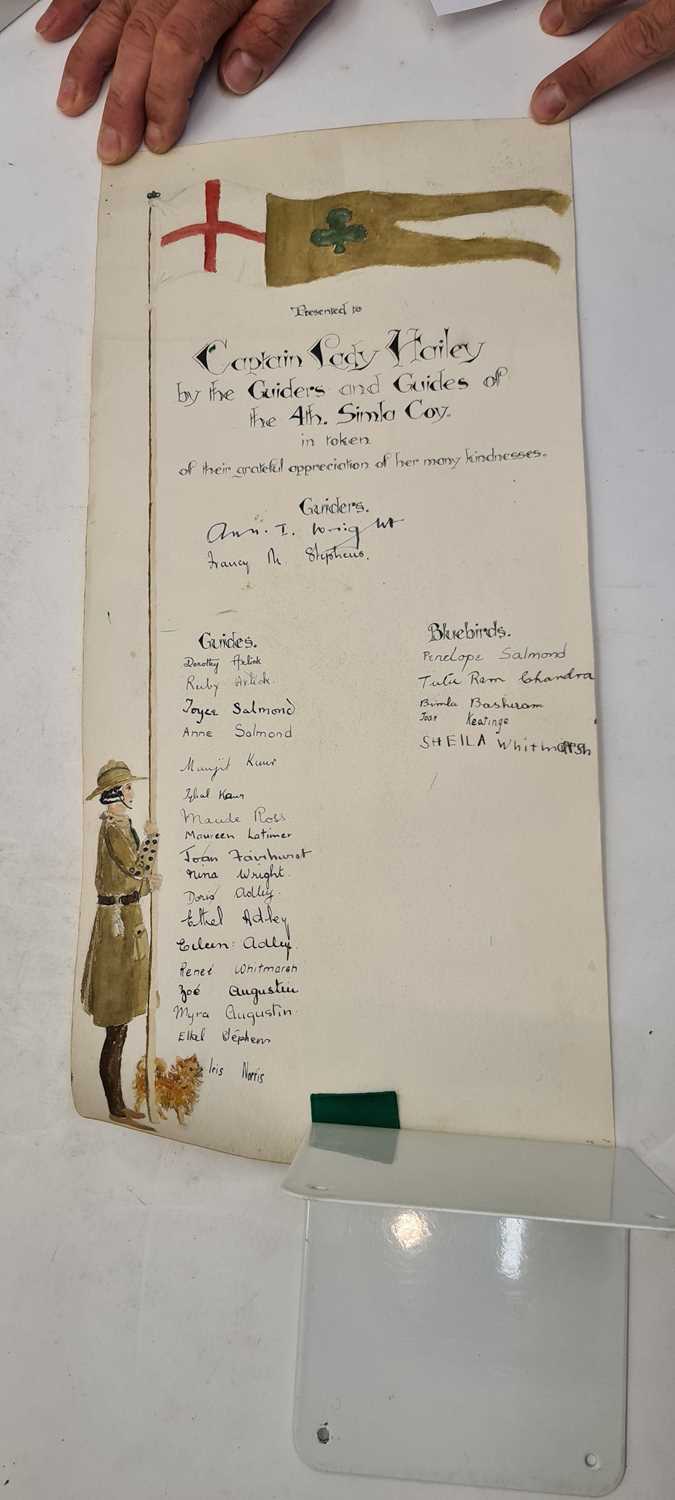 Presented to
Captain Lady Hailey
by the Guiders and Guides of
the 4th. Simla Coy.
in token
of their grateful appreciation of her many kindnesses.
Guiders.
Ann. I. Wright
M. Stephens.
Guides.
Dorothy
Ruby
Joyce Salmond
Anne Salmond
Manjit Kaur
Iqbal Kaur
Maude Ross
Maureen Latimer
Joan Fairhurst
Nina Wright.
Doris Adley.
Ethel Adley
Eileen. Adley.
Reneé Whitmarsh
Zoé Augustin
Myra Augustin.
Stephens
Iris Norris
Bluebirds.
Penelope Salmond
Tutu Ram Chandra
Bimla Bashiram
Joan Keatinge
SHEILA Whitmarsh